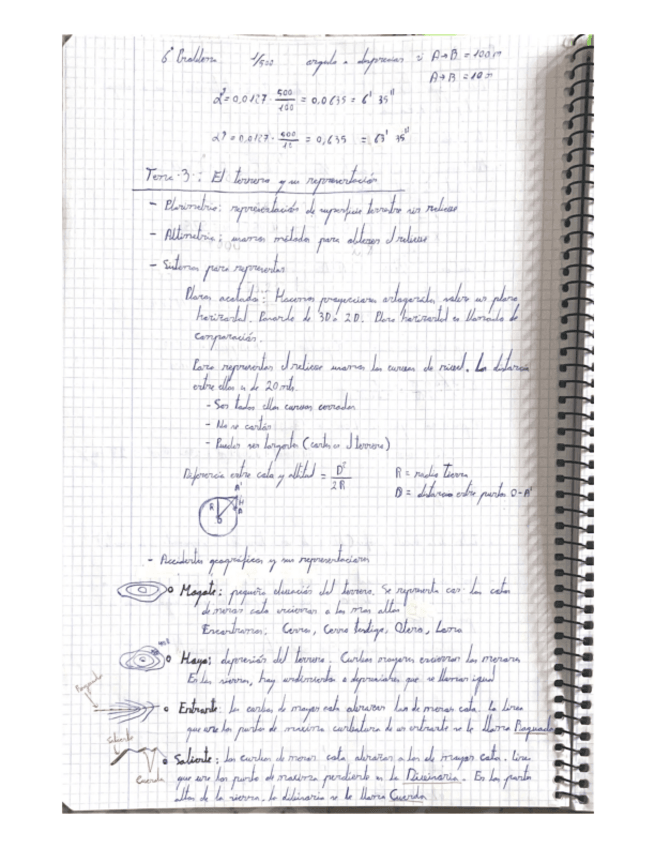 6º Problema 1/500 angulo a despreciar si A→B = 100 m
A→B = 10 m
α? = 0,0127 · 500/100 = 0,0635 = 6' 35''
α? = 0,0127 · 500/10 = 0,635 = 63' 35''
Tema 3: El terreno y su representación
- Planimetria: representación de superficie terrestre sin relieve
- Altimetria: usamos métodos para obtener el relieve
- Sistemas para representar
Planos acotados: Hacemos proyecciones ortogonales sobre un plano
horizontal. Pasando de 3D a 2D. Plano horizontal es llamado de
comparación.
Para representar el relieve usamos las curvas de nivel. La distancia
entre ellas es de 20 mts.
- Son todas ellas curvas cerradas
- No se cortan
- Pueden ser tangentes (cortes en el terreno)
Diferencia entre cota y altitud = D²/2R R = radio Tierra
D = distancia entre puntos O-A'
A'
R H
A
- Accidentes geográficos y sus representaciones
o Mogote: pequeña elevación del terreno. Se representa con las cotas
de menor cota encierran a las mas altas
Encontramos: Cerro, Cerro testigo, Otero, Loma
o Hoya: depresión del terreno. Curvas mayores encierran las menores
En las sierras, hay hundimientos o depresiones que se llaman igual
o Entrante: las curvas de mayor cota abrazan las de menor cota. La linea
que une los puntos de maxima curvatura de un entrante se le llama Vaguada
Saliente
o Saliente: las curvas de menor cota abrazan a las de mayor cota. Linea
que une los puntos de maxima pendiente es la Divisoria. En las partes
Cuerda
altas de la sierra, la divisoria se le llama Cuerda